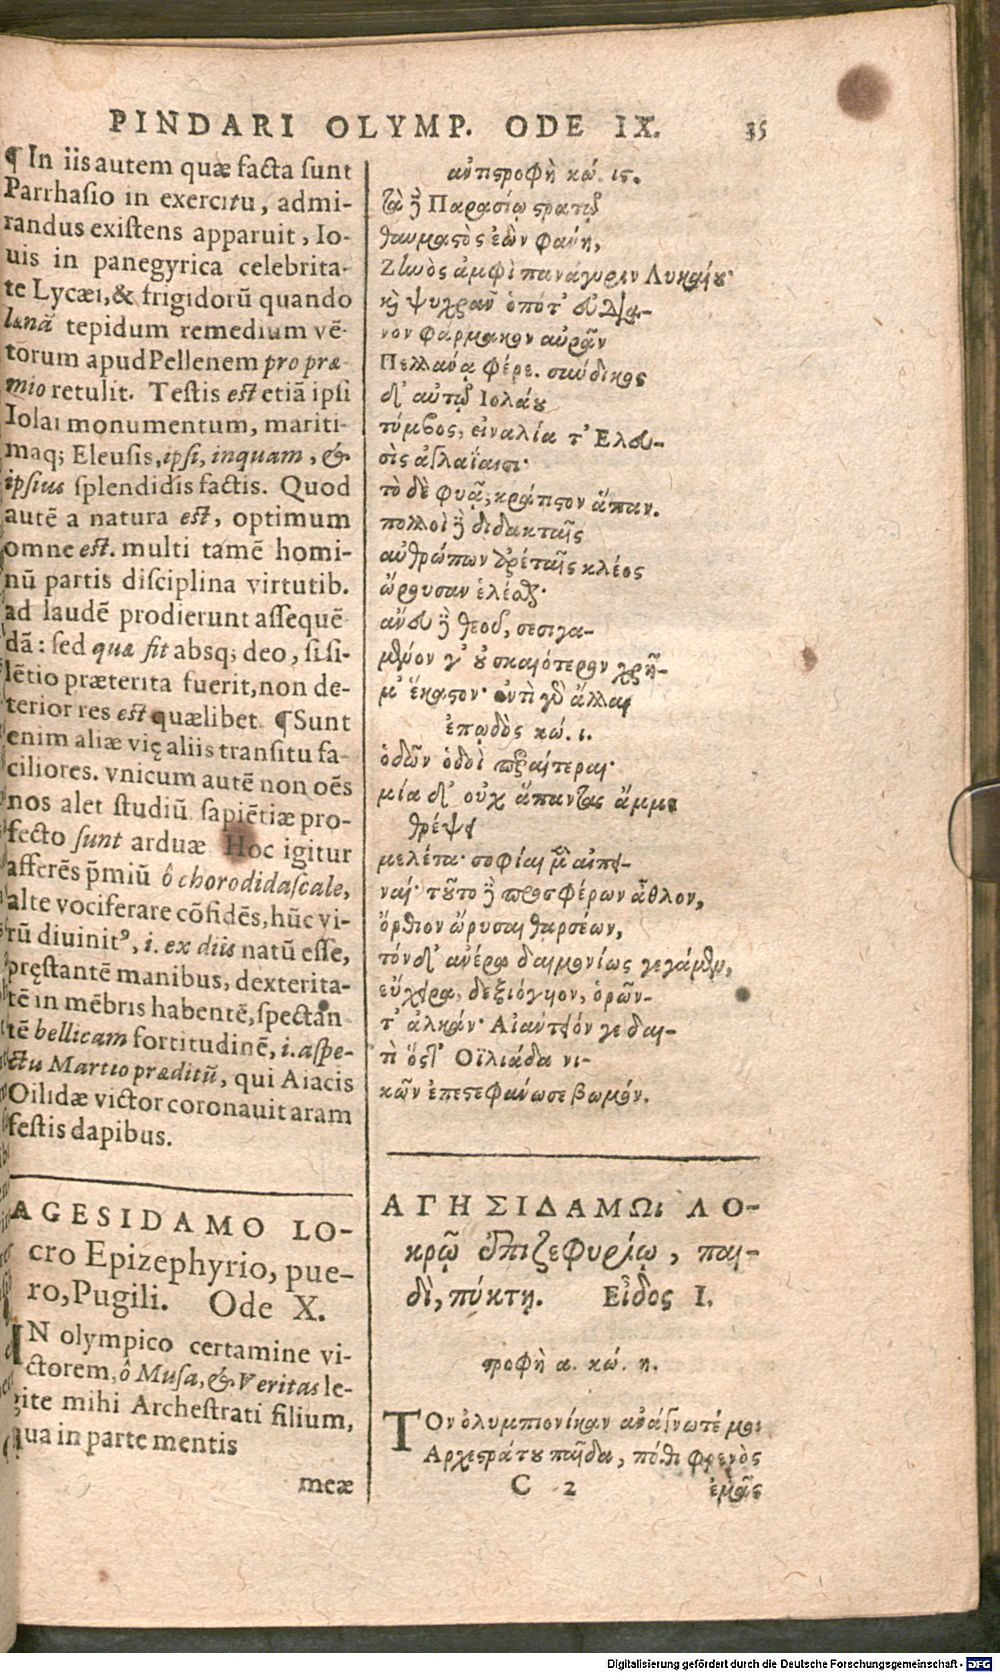 PINDARI OLYMP. ODE IX. 35
¶ In iis autem quæ facta ſunt
Parrhaſio in exercitu, admi-
randus exiſtens apparuit, Io-
uis in panegyrica celebrita-
te Lycæi, & frigidorũ quando
lanã tepidum remedium vẽ-
torum apud Pellenem pro præ-
mio retulit. Teſtis eſt etiã ipſi
Iolai monumentum, mariti-
maq; Eleuſis, ipſi, inquam, &
ipſius ſplendidis factis. Quod
autẽ a natura eſt, optimum
omne eſt. multi tamẽ homi-
nũ partis diſciplina virtutib.
ad laudẽ prodierunt aſſequẽ
dã: ſed quæ fit absq; deo, ſi ſi-
lẽtio præterita fuerit, non de-
terior res eſt quælibet ¶ Sunt
enim aliæ vię aliis tranſitu fa-
ciliores. vnicum autẽ non oẽs
nos alet ſtudiũ ſapiẽtiæ pro-
fecto ſunt arduæ Hoc igitur
afferẽs p̃miũ ô chorodidaſcale,
alte vociferare cõfidẽs, hũc vi-
rũ diuinitꝰ, i. ex diis natũ eſſe,
pręſtantẽ manibus, dexterita-
tẽ in mẽbris habentẽ, ſpectan
tẽ bellicam fortitudinẽ, i. aſpe-
ctu Martio præditũ, qui Aiacis
Oilidæ victor coronauit aram
feſtis dapibus.
AGESIDAMO LO-
cro Epizephyrio, pue-
ro, Pugili. Ode X.
IN olympico certamine vi-
ctorem, ô Muſa, & Veritas le-
gite mihi Archeſtrati filium,
qua in parte mentis
meæ
ἀντιστροφὴ κώ. ις.
τὰ ἢ Παρασίῳ στρατῷ
θαυμαστὸς ἐὼν φάνη,
Ζηνὸς ἀμφὶ πανάγυριν Λυκαίου·
καὶ ψυχρᾶν ὁπότ' εὐδια-
νὸν φάρμακον αὐρᾶν
Πελλάνᾳ φέρε. σύνδικος
δ' αὐτῷ Ιολάου
τύμβος, εἰναλία τ' Ελευ-
σὶς ἀγλαΐαισι·
τὸ δὲ φυᾷ, κράτιστον ἅπαν.
πολλοὶ ἢ διδακταῖς
ἀνθρώπων ἀρεταῖς κλέος
ὤρουσαν ἑλέσθαι·
ἄνευ ἢ θεοῦ, σεσιγα-
μένον γ' οὐ σκαιότερον χρῆ-
μ' ἕκαστον· ἐντὶ γὰρ ἄλλαι
ἐπῳδὸς κώ. ι.
ὁδῶν ὁδοὶ περαίτεραι·
μία δ' οὐχ ἅπαντας ἄμμε
θρέψει
μελέτα· σοφίαι μὲν αἰπει-
ναί· τοῦτο ἢ προσφέρων ἆθλον,
ὄρθιον ὤρυσαι θαρσέων,
τόνδ' ἀνέρα δαιμονίως γεγάμεν,
εὔχειρα, δεξιόγυιον, ὁρῶν-
τ' ἀλκάν· Αἰάντειόν γε δαι-
τὶ ὅστ' Οϊλιάδα νι-
κῶν ἐπεστεφάνωσε βωμόν.
ΑΓΗΣΙΔΑΜΩι ΛΟ-
κρῷ ἐπιζεφυρίῳ, παι-
δὶ, πύκτῃ. Εἶδος Ι.
στροφὴ α. κώ. η.
ΤΟν ὀλυμπιονίκαν ἀνάγνωτέ μοι
Αρχεστράτου παῖδα, πόθι φρενὸς
C 2 ἐμᾶς
Digitalisierung gefördert durch die Deutsche Forschungsgemeinschaft - DFG